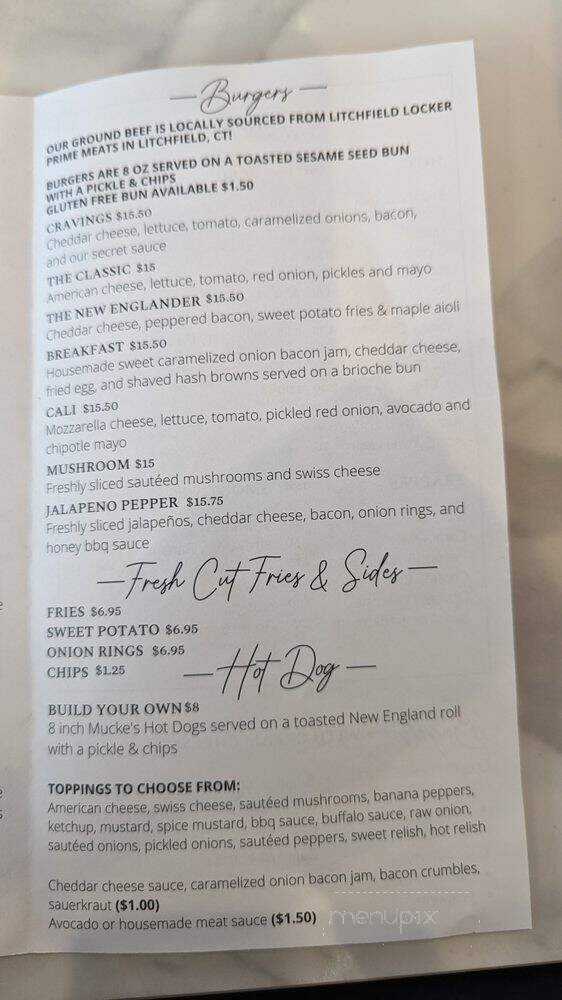 Burgers
OUR GROUND BEEF IS LOCALLY SOURCED FROM LITCHFIELD LOCKER
PRIME MEATS IN LITCHFIELD, CT!
BURGERS ARE 8 OZ SERVED ON A TOASTED SESAME SEED BUN
WITH A PICKLE & CHIPS
GLUTEN FREE BUN AVAILABLE $1.50
CRAVINGS $15.50
Cheddar cheese, lettuce, tomato, caramelized onions, bacon,
and our secret sauce
THE CLASSIC $15
American cheese, lettuce, tomato, red onion, pickles and mayo
THE NEW ENGLANDER $15.50
Cheddar cheese, peppered bacon, sweet potato fries & maple aioli
BREAKFAST $15.50
Housemade sweet caramelized onion bacon jam, cheddar cheese,
fried egg, and shaved hash browns served on a brioche bun
CALI $15.50
Mozzarella cheese, lettuce, tomato, pickled red onion, avocado and
chipotle mayo
MUSHROOM $15
Freshly sliced sautéed mushrooms and swiss cheese
JALAPENO PEPPER $15.75
Freshly sliced jalapeños, cheddar cheese, bacon, onion rings, and
honey bbq sauce
Fresh Cut Fries & Sides
FRIES $6.95
SWEET POTATO $6.95
ONION RINGS $6.95
CHIPS $1.25
Hot Dog
BUILD YOUR OWN $8
8 inch Mucke's Hot Dogs served on a toasted New England roll
with a pickle & chips
TOPPINGS TO CHOOSE FROM:
American cheese, swiss cheese, sautéed mushrooms, banana peppers,
ketchup, mustard, spice mustard, bbq sauce, buffalo sauce, raw onion,
sautéed onions, pickled onions, sautéed peppers, sweet relish, hot relish
Cheddar cheese sauce, caramelized onion bacon jam, bacon crumbles,
sauerkraut ($1.00)
Avocado or housemade meat sauce ($1.50)
menupix